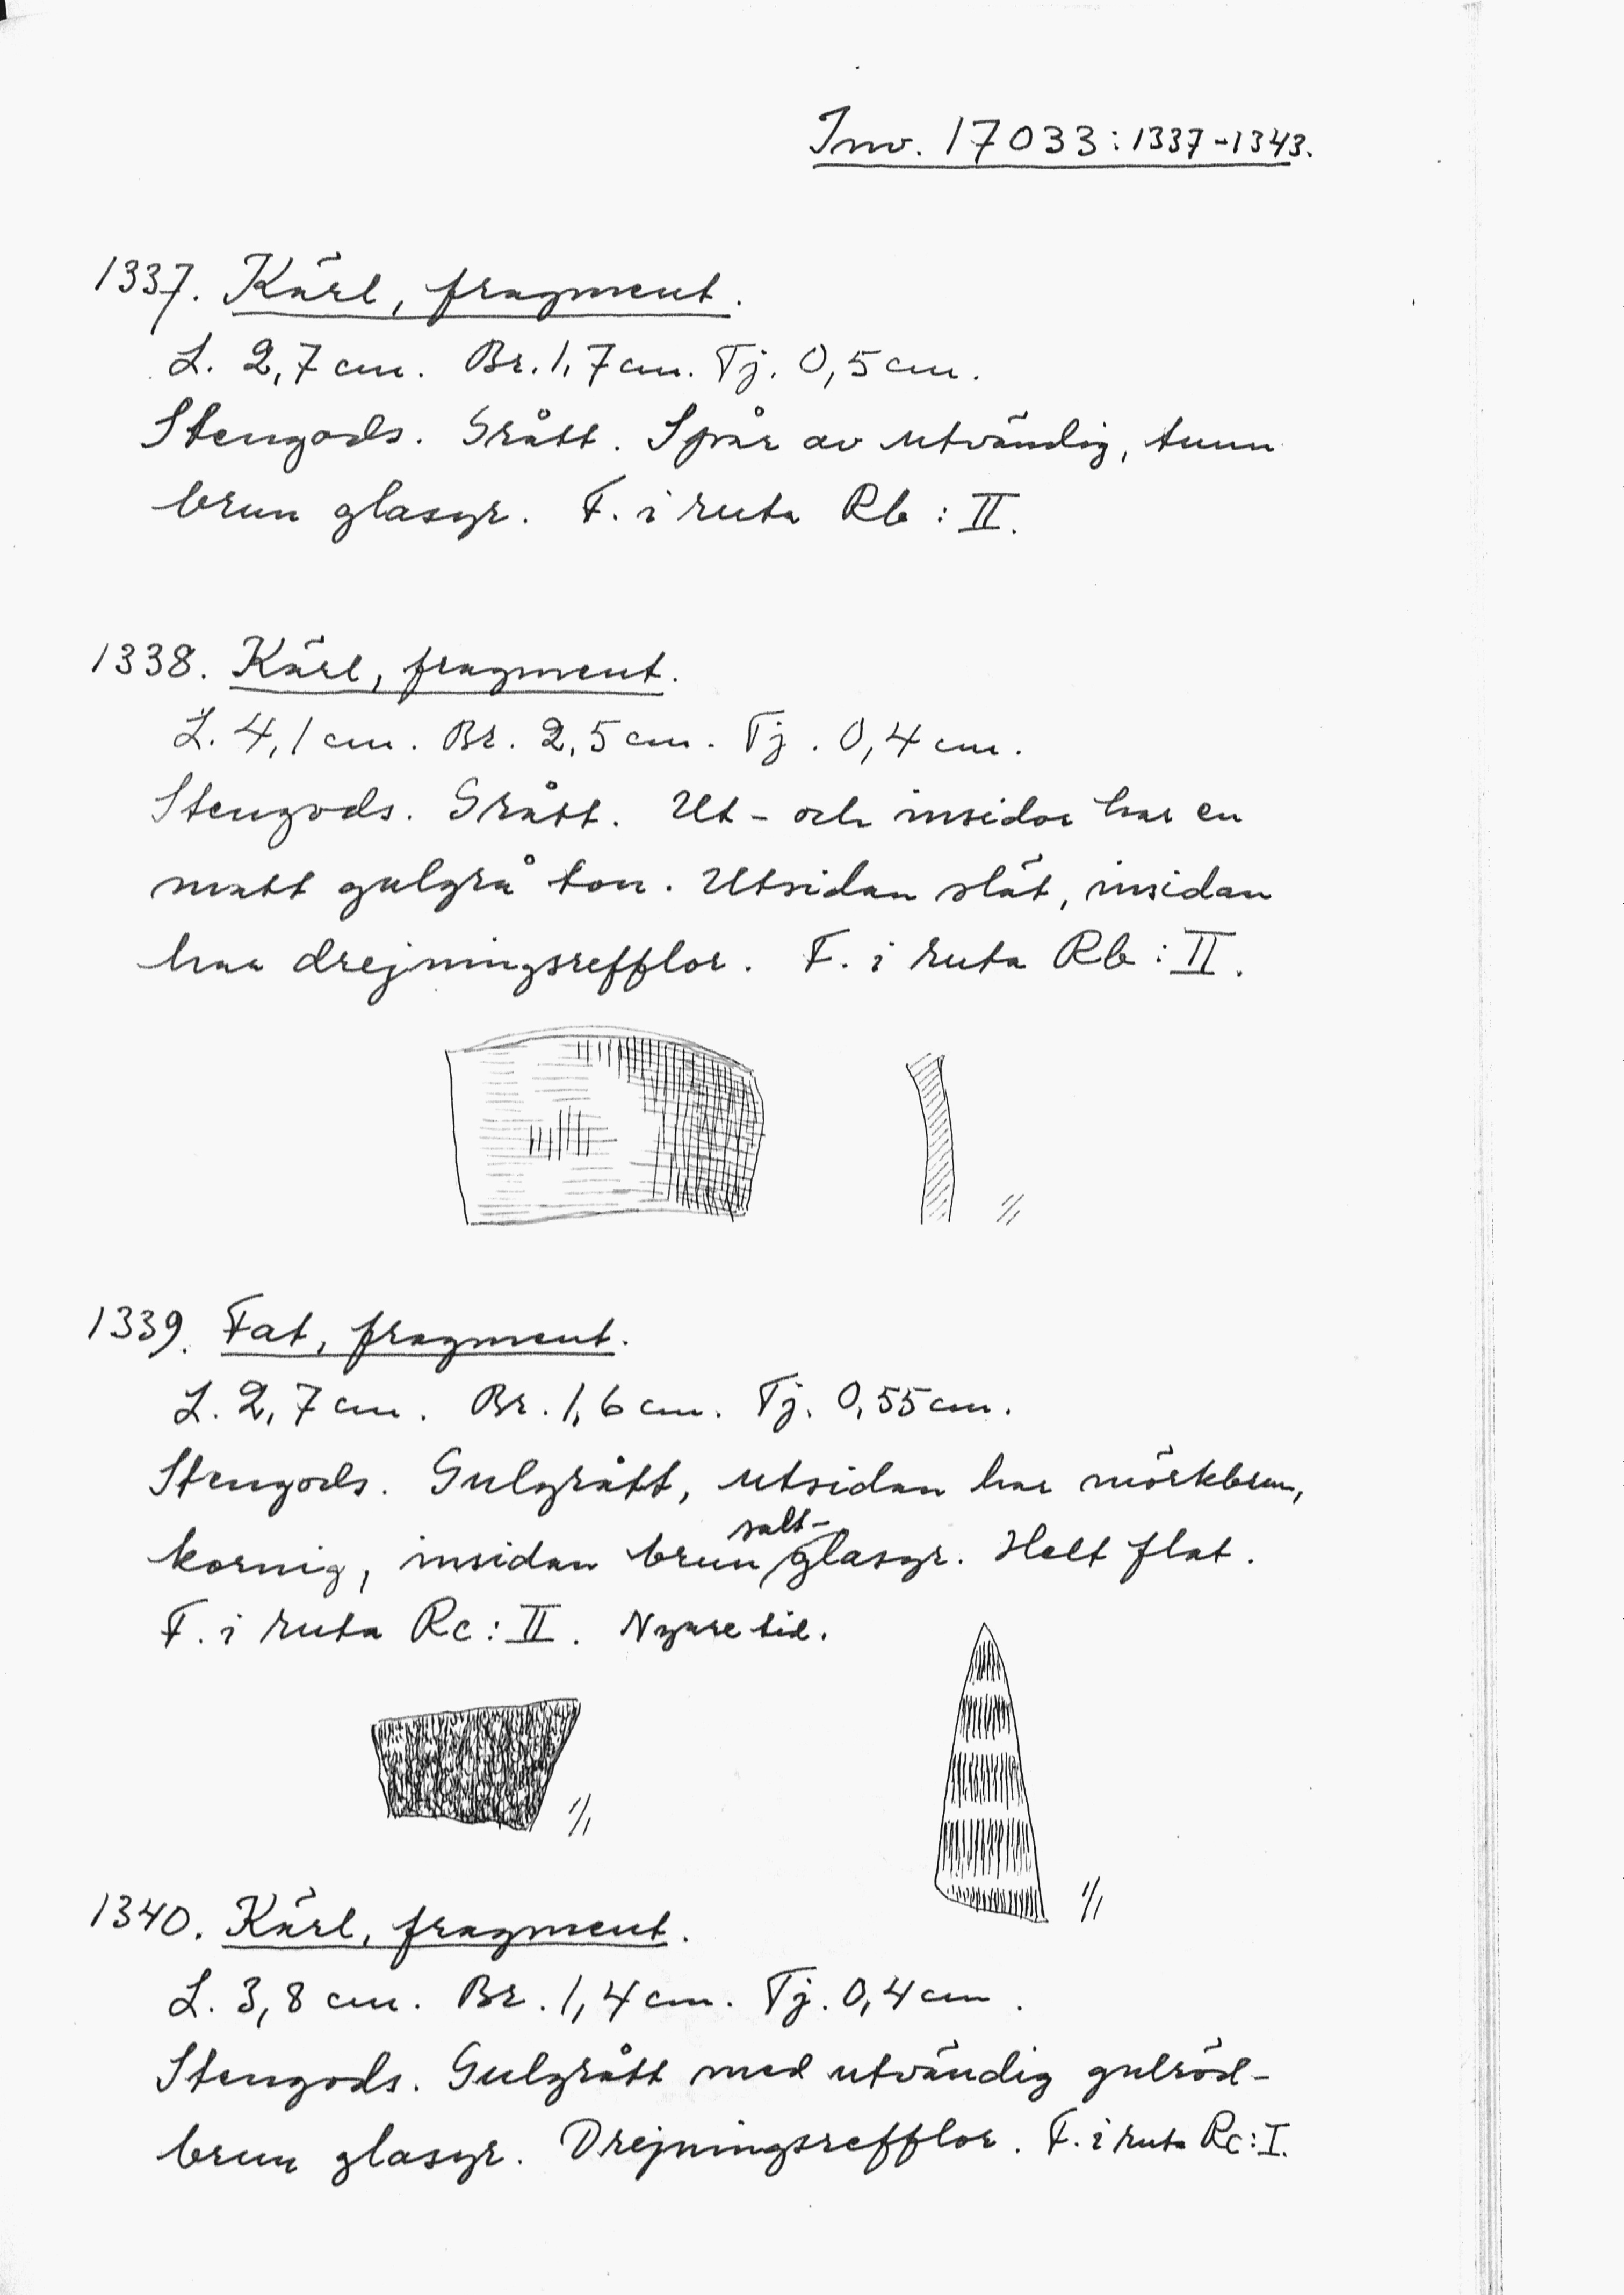 Inv. 17033:1337-1343.
1337. Kärl, fragment.
L. 2,7 cm. Br. 1,7 cm. Tj. 0,5 cm.
Stengods. Grått. Spår av utvändig, tunn
brun glasyr. F. i ruta Rb:II.
1338. Kärl, fragment.
L. 4,1 cm. Br. 2,5 cm. Tj. 0,4 cm.
Stengods. Grått. Ut- och insidor har en
matt gulgrå ton. Utsidan slät, insidan
har drejningsrefflor. F. i ruta Rb:II.
1/1
1339. Fat, fragment.
L. 2,7 cm. Br. 1,6 cm. Tj. 0,55 cm.
Stengods. Gulgrått, utsidan har mörkbrun,
kornig, insidan brun salt-glasyr. Helt flat.
F. i ruta Rc:II. Nyare tid.
1/1
1/1
1340. Kärl, fragment.
L. 3,8 cm. Br. 1,4 cm. Tj. 0,4 cm.
Stengods. Gulgrått med utvändig gulröd-
brun glasyr. Drejningsrefflor. F. i ruta Rc:I.